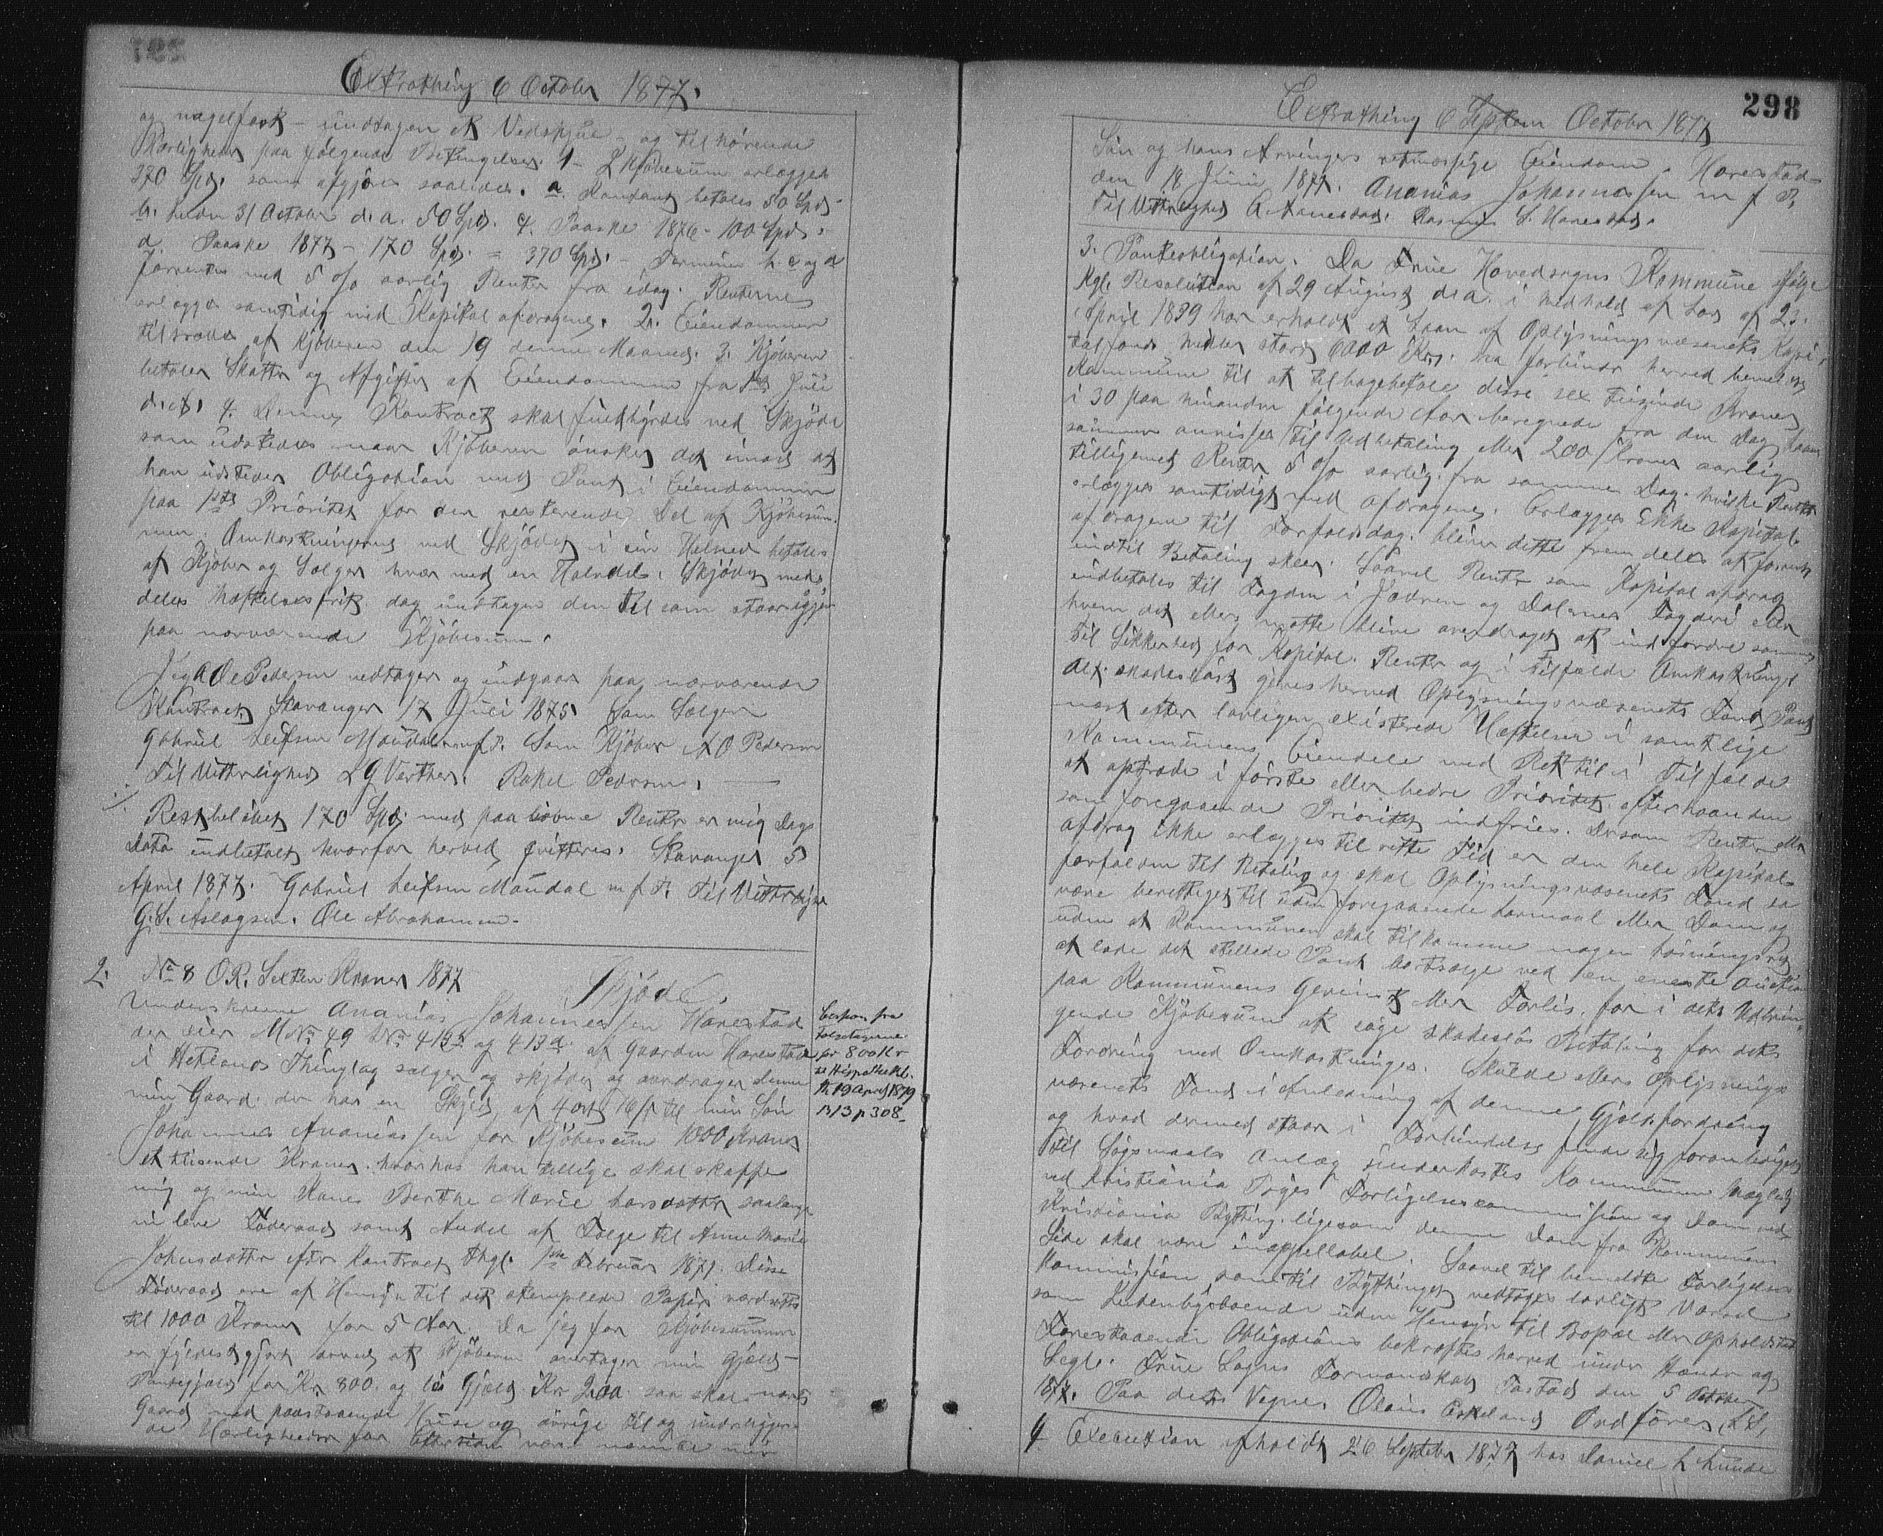 Extrathing 6 October 1877.
og nagelfast – undtagen et Vedskjul – og tilhørende
Herligheder paa følgende Betingelser. 1 – Kjøbesum erlægges
370 Spd. som afgjøres saaledes. a. Kontant betales 50 Spd.
b. inden 31 October d.a. 50 Spd. c. Paaske 1876 – 100 Spd.
d. Paaske 1877 – 170 Spd. = 370 Spd. – Terminer b. c og d
forrentes med 5 o/o aarlig Renter fra idag. Renterne
erlægges samtidig med Kapital afdragene. 2. Eiendommen
tiltrædes af Kjøberen den 19 denne Maaned. 3. Kjøberen
betaler Skatter og Afgifter af Eiendommen fra 1ste Juli
d.A. 4. Denne Kontract skal fuldbyrdes ved Skjøde
som udstedes naar Kjøberen ønsker det imod at
han udsteder Obligation med Pant i Eiendommen
paa 1ste Prioritet for den resterende Del af Kjøbesum-
men. Omkostningerne ved Skjødet i sin Helhed betales
af Kjøber og Sælger hver med en Halvdel. Skjødet med-
deles hæftelsesfrit dog undtagen den Del som staar igjen
paa nærværende Kjøbesum.
Jeg A O Pedersen vedtager og indgaar paa nærværende
Kontract, Stavanger 17 Juli 1875. Som Sælger
Gabriel Leifsen Maudal m.f.P. Som Kjøber A O Pedersen
Til Vitterlighed L G Værther. Rakel Pedersen.
Restbeløbet 170 Spd. med paaløbne Renter er mig Dags
Dato indbetalt hvorfor herved qvitteres. Stavanger 5
April 1877. Gabriel Leifsen Maudal m.f.P. Til Vitterlighed
G. S. Aslagsen. Ole Abrahamsen.
2. No 8 O.R. Sexten Kroner 1877
Skjøde.
Underskrevne Ananias Johannessen Harestad
der eier M No 49 L No 413 og 413a af Gaarden Harestad
i Hetlands Thinglag sælger og skjøder og overdrager denne
min Gaard der har en Skyld af 4 ort 16 ß til min Søn
Johannes Ananiassen for Kjøbesum 1000 Kroner
et tusende Kroner. hvorhos han tillige skal skaffe
mig og min Kone Berthe Marie Larsdatter saalænge
vi leve Føderaad samt Andel af Følge til Anne Marie
Johnsdatter efter Kontract thgl. 1ste Februar 1871. Disse
Føderaad ere af Hensyn til det stemplede Papir værdsatte
til 1000 Kroner for 5 Aar. Da jeg for Kjøbesummen
er fyldestgjort derved at Kjøberen overtager min Gjæld –
Pantegjæld for Kr 800 og løs Gjæld Kr 200. saa skal nævnte
Gaard med paastaaende Huse og øvrige til og underliggen-
de Herligheder for Eftertiden være nævnte min
Besparr fra
Folgetagerne
for 800 Kr
til Hypothekb.
th 19 April 1879
B 13 p 308.
298
Extrathing 6 Septem October 1877
Søn og hans Arvingers retmæssige Eiendom. Harestad
den 18 Juni 1877. Ananias Johannessen m f P.
Til Vitterlighed A. Harestad. Rasmus L. Harestad.
3. Panteobligation. Da Frue Hovedsogns Kommune ifølge
Kgl. Resolution af 29 August d.a. i Medhold af Lov af 23.
April 1839 har erholdt et Laan af Oplysningsvæsenets Kapi-
talfonds Midler stort 6000 Kr. saa forbinder herved bemeldte
Kommune til at tilbagebetale disse sex tusinde Kroner
i 30 paa hinanden følgende Aar beregnede fra den Dag Laan
summen anvises til Udbetaling eller 200 Kroner aarlig
tilligemed Renter 5 o/o aarlig fra samme Dag. hvilke Renter
erlægges samtidigt med afdragene. Erlægges ikke Kapital-
afdragene til Forfaldsdag. bliver dette fremdeles at forrente
indtil Betaling skeer. Saavel Renter som Kapital afdrag
indbetales til Fogden i Jæderen og Dalernes Fogderi eller
hvem det ellers maatte blive overdraget at indfordre samme
Til Sikkerhed for Kapital. Renter og i Tilfælde Omkostninger
Alt skadesløst gives herved Oplysningsvæsenets Fond Pant
næst efter lovligen existerende Hæftelser i samtlige
Kommunens Eiendele med Ret til i Tilfælde
at optræde i første eller bedre Prioritet efterhaanden
som foregaaende Prioritet indfries. Dersom Renter eller
afdrag ikke erlægges til rette Tid er den hele Kapital
forfalden til Betaling og skal Oplysningsvæsenets Fond da
være berettiget til uden foregaaende Lovmaal eller Dom og
uden at Kommunen skal tilkomme nogen Løsningsret
at lade det stillede Pant bortsælge ved en eneste Auction
paa Kommunens Gevinst eller Forlis. for i dets Udbrin-
gende Kjøbesum at søge skadesløs Betaling for dets
Fordring med Omkostninger. Skulde ellers Oplysnings-
væsenets Fond i Anledning af denne Gjældsfordring
og hvad dermed staar i Forbindelse finde sig foranlediget
til Søgsmaals Anlæg underkastes Kommunen Mægling
ved Kristiania Byes Forligelsescommission og Dom ved
Kristiania Bything. ligesom denne Dom fra Kommunens
Side skal være inappellabel. Saavel til bemeldte Forligelses
Kommission som til Bythinget vedtages lovligt Varsel
som Indenbysboende uden Hensyn til Bopæl eller Opholdsted
Forestaaende Obligations bekræftes herved under Haand og
Segle. Frue Sogns Formandskab Tastad den 5 October
1877. Paa dets Vegne Olaus Eskeland Ordfører. L.S.
4 Execution afholdt 26 September 1877 hos Daniel L Lunde